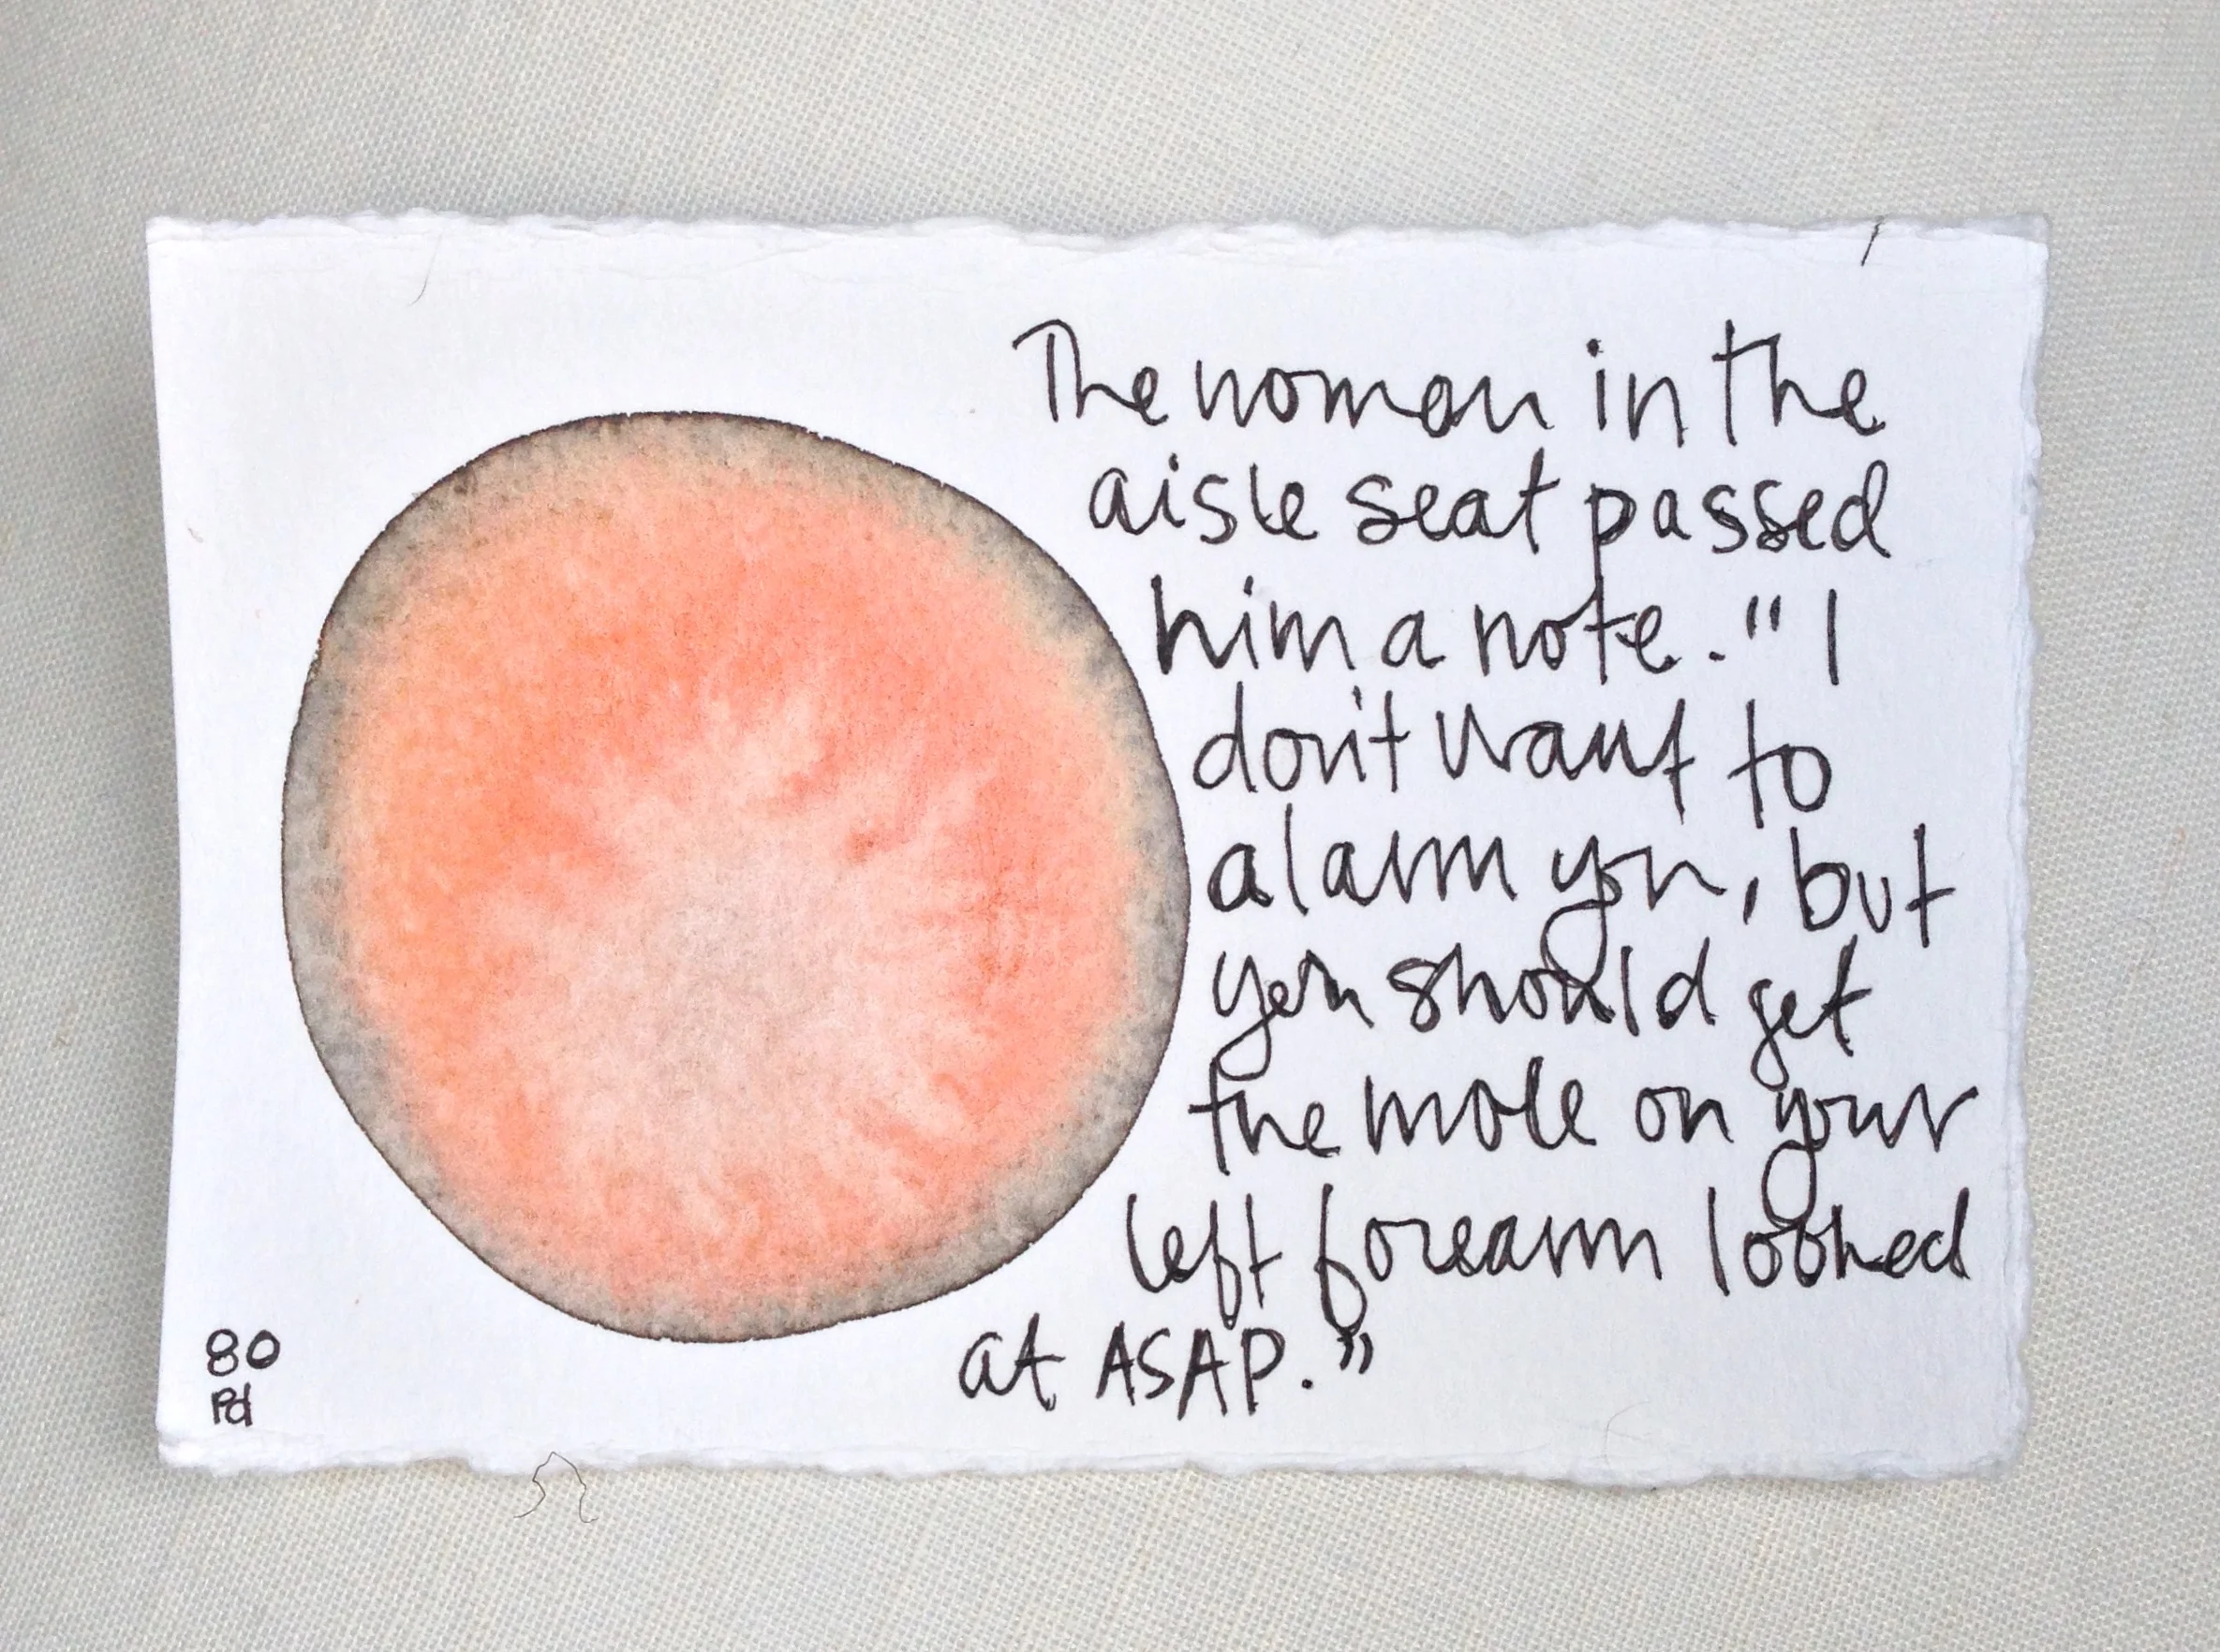 The woman in the
aisle seat passed
him a note. "I
don't want to
alarm you, but
you should get
the mole on your
left forearm looked
at ASAP."
80
Pd